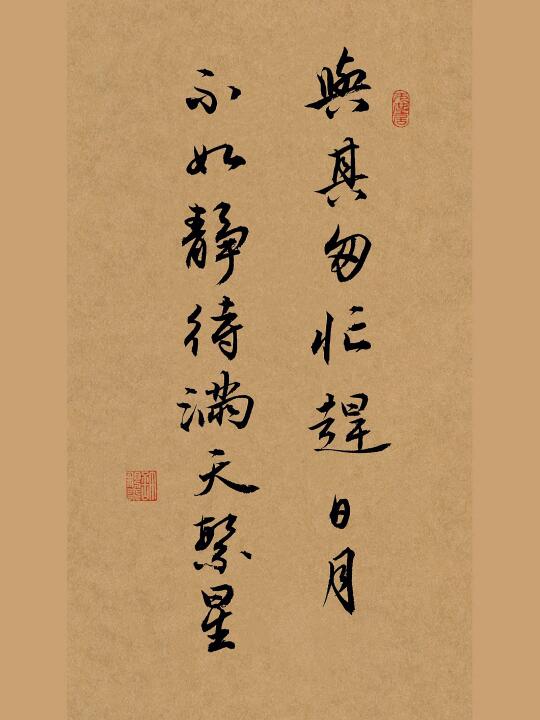 與其匆忙趕日月
不如靜待滿天繁星